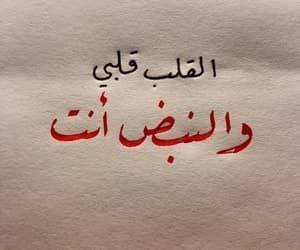 القلب قلبي
والنبض أنت